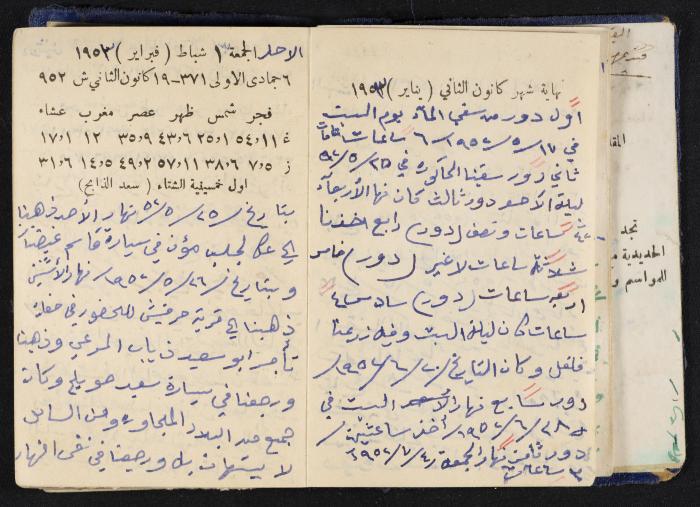 نهاية شهر كانون الثاني ( يناير ) ١٩٥٣
اول دور من سقي الماء يوم السبت
في ١٧/٥/١٩٥٢ - ٦ ساعات
ثاني دور سقينا الحاكوره في ٢٥/٥/٥٢
ليلة الاحد دور ثالث كان نهار الأربعاء
ساعات ونصف (دور) رابع اخذنا
ثلاثة ساعات لا غير (دور) خامس
اربعه ساعات (دور) سادس
ساعات كان ليلة السبت وفيه زرعنا
فلفل وكان التاريخ ٢٠/٦/١٩٥٢
دور سابع نهار السبت في
٢٨/٦/١٩٥٢ أخذ ساعتين
دور ثامن نهار الجمعة ٤/٧/١٩٥٢
٣ ساعات
الاحد الجمعة ١ شباط ( فبراير ) ١٩٥٣
٦ جمادى الاولى ٣٧١-١٩ كانون الثاني ش ٩٥٢
فجر شمس ظهر عصر مغرب عشاء
غ ١١و٥٤ ١و٢٥ ٦و٤٣ ٩و٣٥ ١٢ ١و١٧
ز ٥و٧ ٦و٣٨ ١١و٥٧ ٢و٤٩ ٥و١٤ ٦و٣١
اول خمسينية الشتاء ( سعد الذابح )
بتاريخ ٢٥/٥/٥٢ نهار الأحد ذهبنا
الى عكا لجلب مؤن في سيارة قاسم
وبتاريخ ٢٦/٥/١٩٥٢ نهار الأثنين
ذهبنا الى قرية حرفيش للحضور في حفلة
تأجر ابو سعيد ذياب المرعي وذهبنا
ورجعنا في سيارة سعيد وكان
جميع من البلاد المجاوره ومن الساحل
لا يستهان به ورجعنا في نفس النهار
تجد
الحديدية
للمواسم